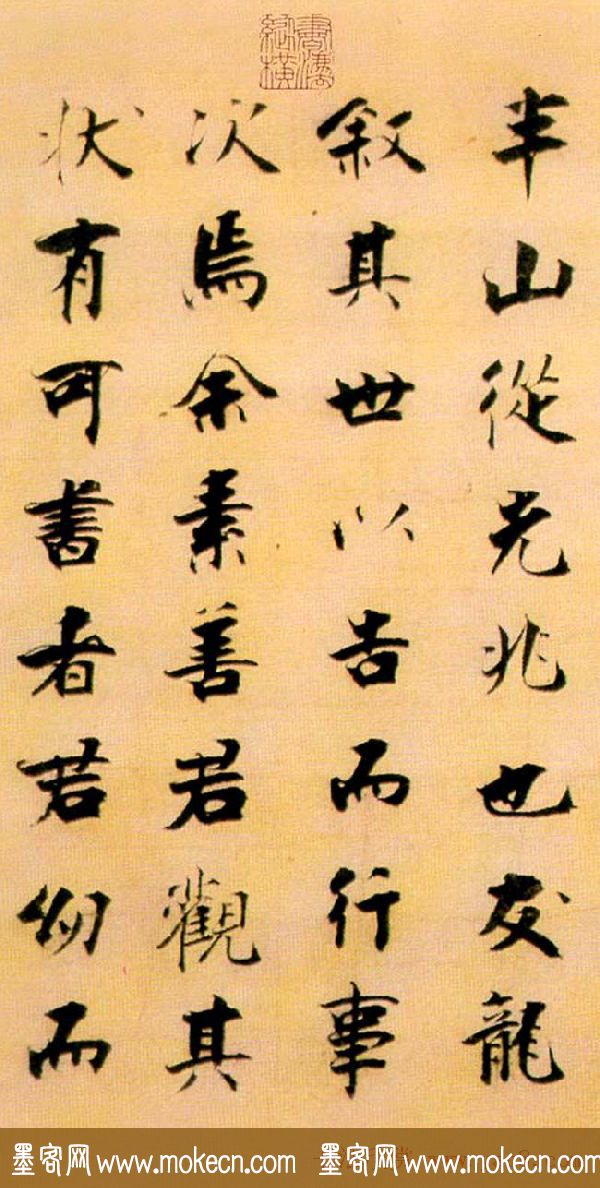 半山從先兆也友龍
敘其世以告而行事
次焉余素善君觀其
状有可書者君幼而
墨客网 www.mokecn.com 墨客网 www.mokecn.com